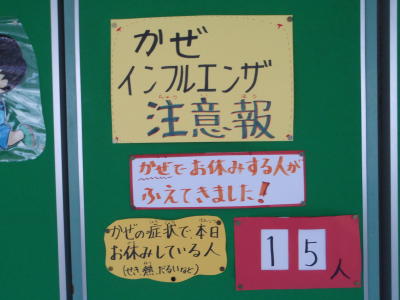 かぜ
インフルエンザ
注意報
かぜでお休みする人が
ふえてきました!
かぜの症状で、本日
お休みしている人
(せき、熱、だるいなど)
15人